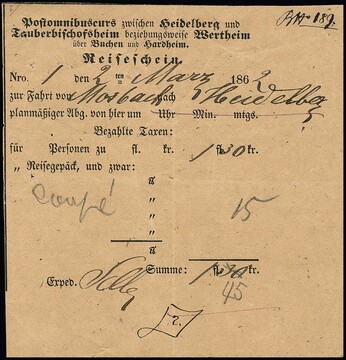 Postomnibuscurs zwischen Heidelberg und
Tauberbischofsheim beziehungsweise Wertheim
über Buchen und Hardheim.
Reiseschein
Nro. 1 den 2 ten März 1862
zur Fahrt von Mosbach nach Heidelberg
planmäßiger Abg. von hier um Uhr Min. mtgs.
Bezahlte Taxen:
für Personen zu fl. kr. 1 fl. 30 kr.
„ Reisegepäck, und zwar:
℔
coupé „
„ 15
„
℔
Summe: 1 fl. 30 kr.
45
Exped.
2.